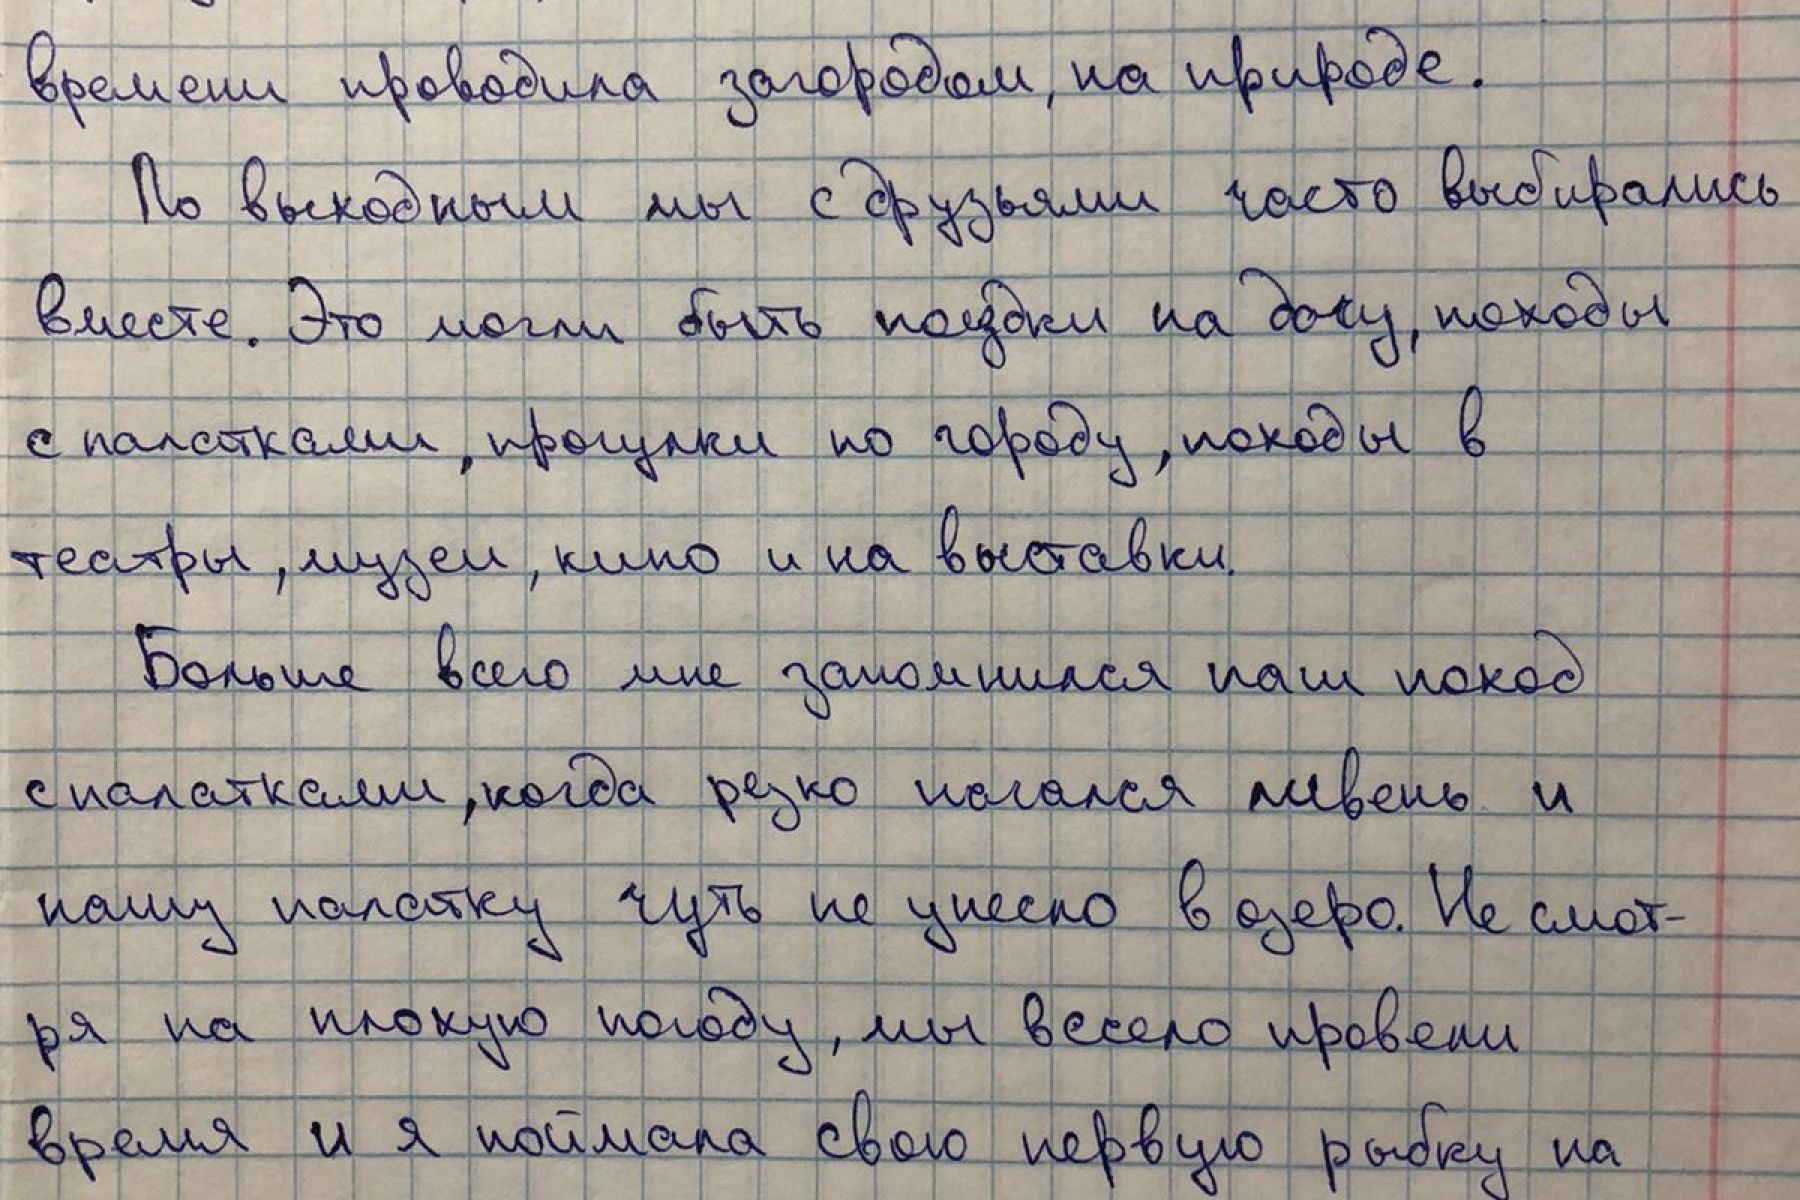 времени проводила загородом, на природе.
По выходным мы с друзьями часто выбирались
вместе. Это могли быть поездки на дачу, походы
с палатками, прогулки по городу, походы в
театры, музеи, кино и на выставки.
Больше всего мне запомнился наш поход
с палатками, когда резко начался ливень и
нашу палатку чуть не унесло в озеро. Не смот-
ря на плохую погоду, мы весело провели
время и я поймала свою первую рыбку на